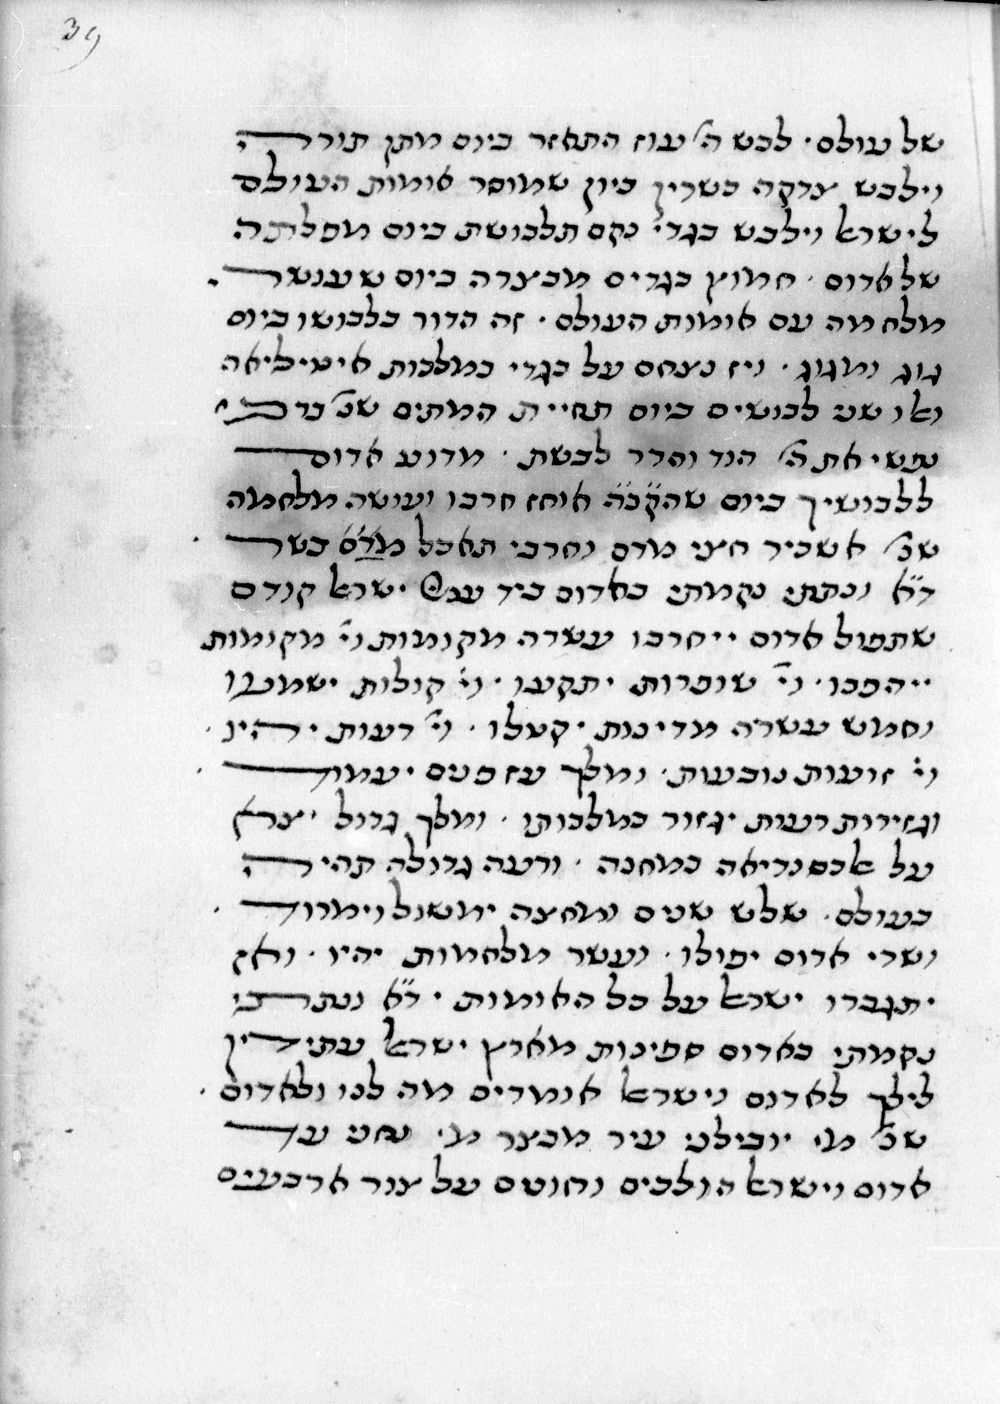 39
של עולם · לבש ה׳ עוז התאזר ביום מתן תורה
וילבש צדקה כשריין כיון שמוסר אומות העולם
לישראל וילבש בגדי נקם תלבושת ביום מפלתה
של אדום · חמוץ בגדים מבצרה ביום שעושה
מלחמה עם אומות העולם · זה הדור בלבושו ביום
גוג ומגוג · ויז נצחם על בגדי במלכות איטיליאה
ואלו שני לבושים ביום תחיית המתים שנ׳ ברכי
נפשי את ה׳ הוד והדר לבשת · מדוע אדום
ללבושיך ביום שהקב״ה אוחז חרבו ועושה מלחמה
שנ׳ אשכיר חיצי מדם וחרבי תאכל בשר
ד״א ונתתי נקמתי באדום ביד עמי ישראל קודם
שתפול אדום ייחרבו עשרה מקומות וי׳ מקומות
ייהפכו · וי׳ שופרות יתקעו · וי׳ קולות ישמעו
וחמש עשרה מדינות יקטלו · וי׳ רעות יהיו ·
וי׳ זועות נובעות · ומלך עז פנים יעמוד
וגזירות רעות יגזור במלכותו · ומלך גדול יצא
על אלכסנדריאה במחנה · ורעה גדולה תהיה
בעולם · שלש שנים ומחצה ימשול וימרוד ·
ושרי אדום יפולו · ועשר מלחמות יהיו · ואז
יתגברו ישראל על כל האומות · ד״א ונתתי
נקמתי באדום ספינות מארץ ישראל עתידין
לילך לאדום וישראל אומרים מה לנו ולאדום ·
שנ׳ מי יובילני עיר מבצר מי נחני עד
אדום וישראל הולכים וחונים על צור ארבעים